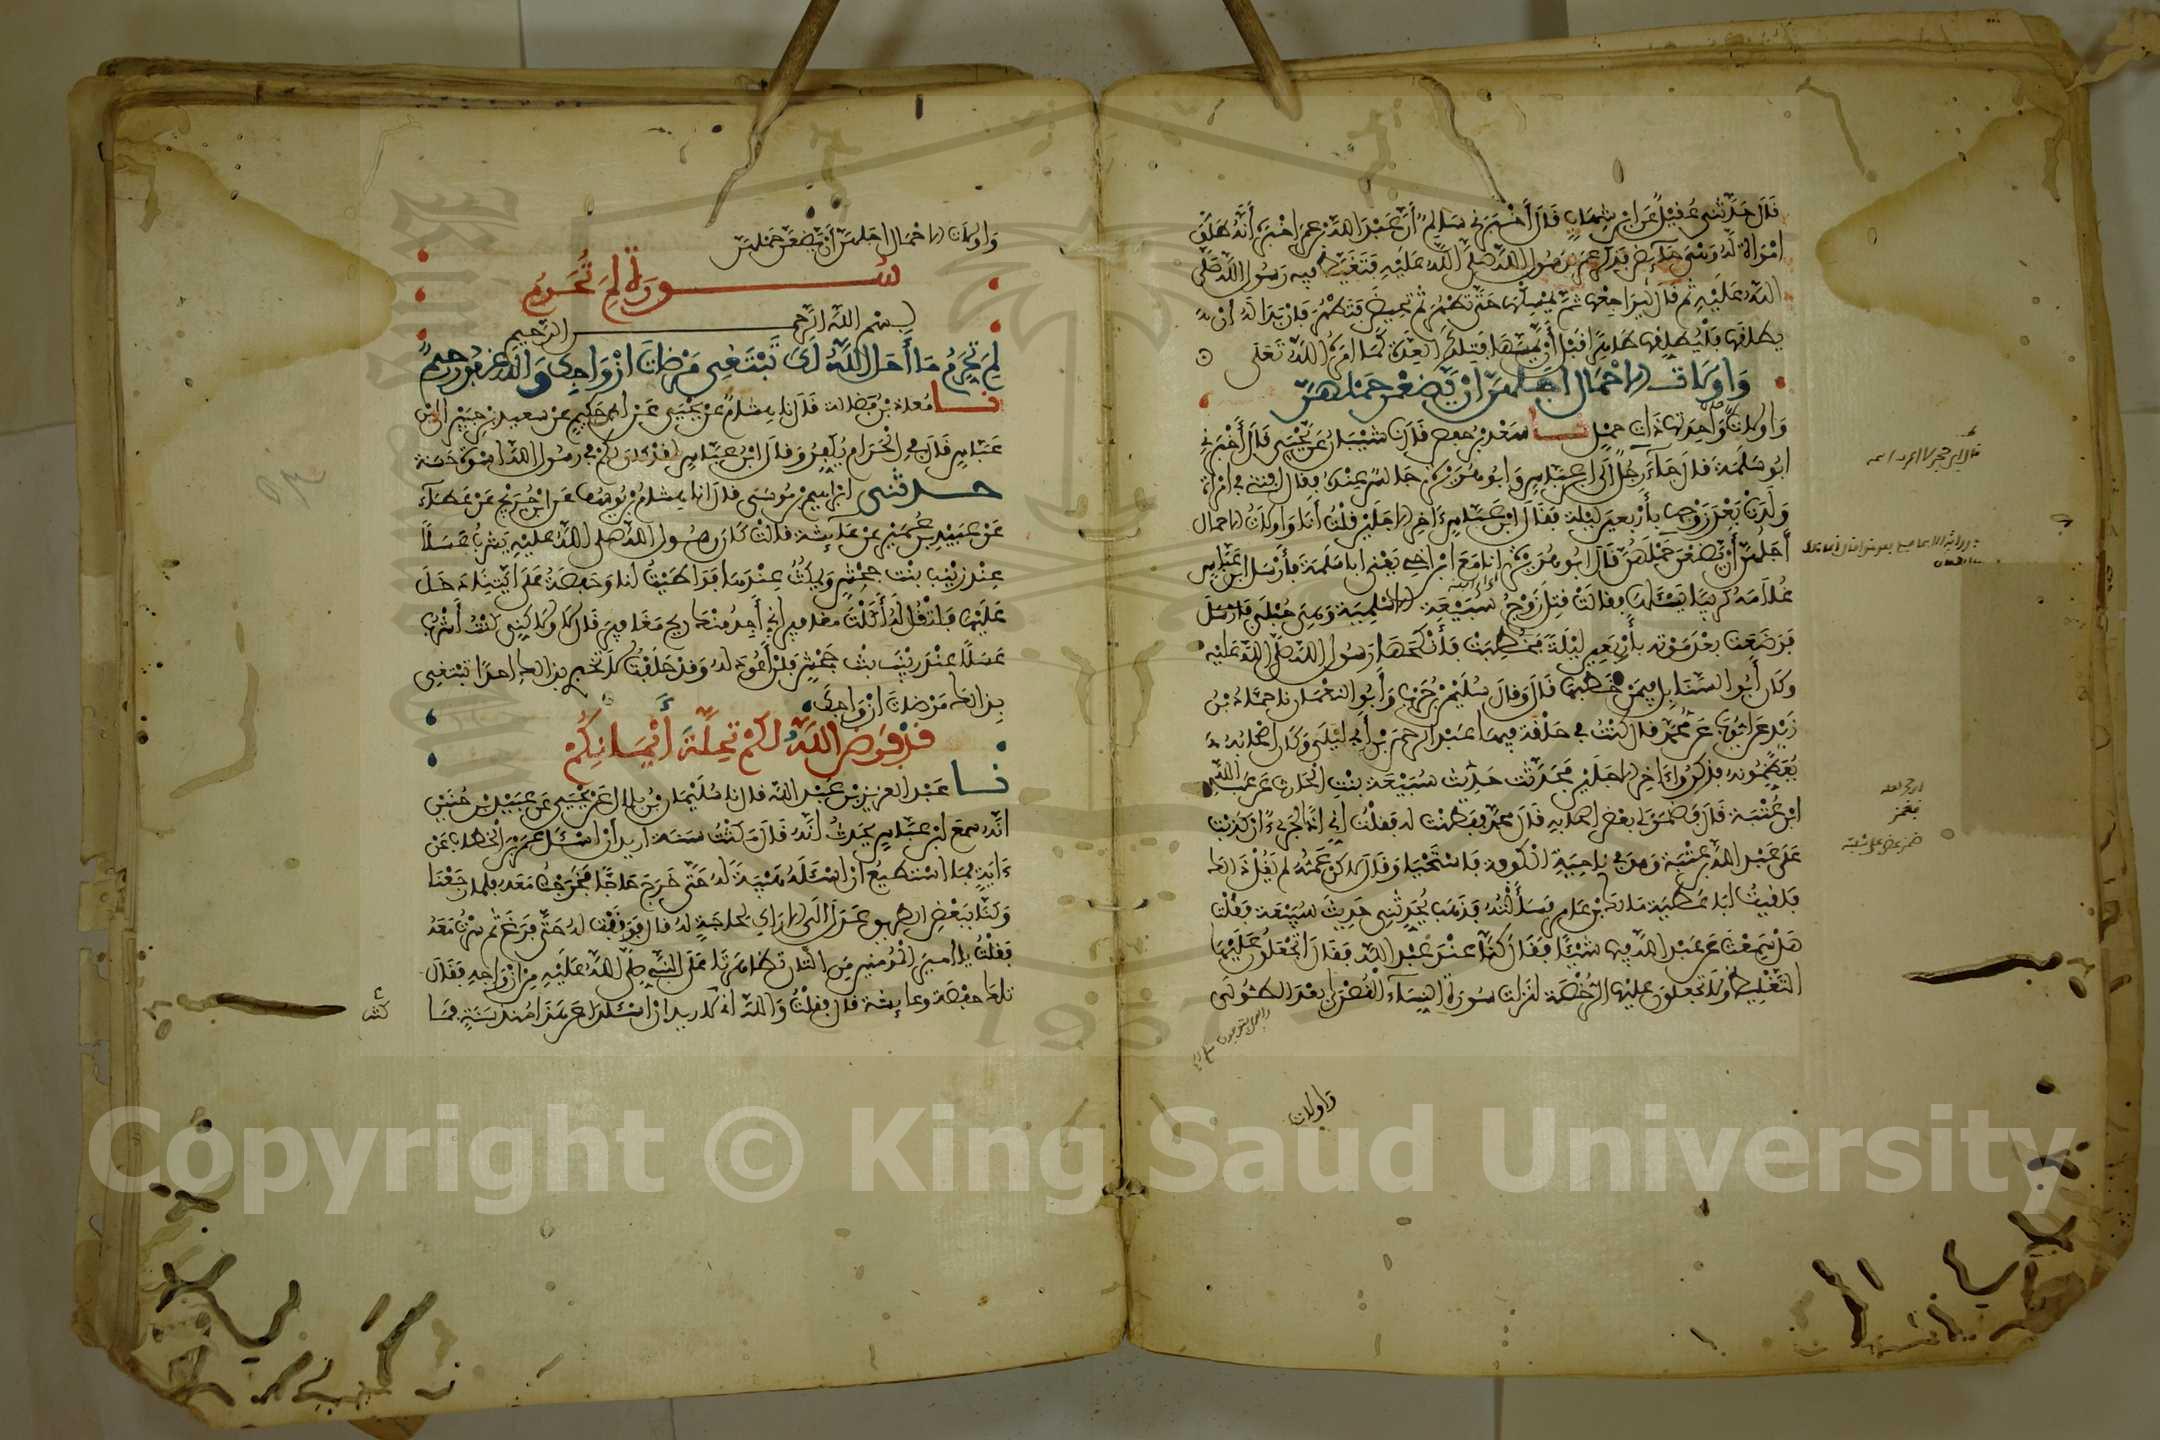 قال حدثني عقيل عن ابن شهاب قال أخبرني سالم أن عبد الله بن عمر اخبره أنه طلق
امراة له وهي حائض فذكر عمر لرسول الله صلى الله عليه فتغيظ فيه رسول الله صلى
الله عليه ثم قال ليراجعها ثم يمسكها حتى تطهر ثم تحيض فتطهر فإن بدا له ان
يطلقها فليطلقها طاهرا قبل أن يمسها فتلك العدة كما امره الله تعلى
وأولات الاحمال أجلهن أن يضعن حملهن
وأولات واحدتها ذات حمل نا سعد بن حفص قال نا شيبان عن يحيى قال أخبرني
ابو سلمة قال جاء رجل الى ابن عباس وابو هريرة جالس عنده فقال افتني في امراة
ولدت بعد زوجها بأربعين ليلة فقال ابن عباس ءاخر الاجلين قلت أنا وأولات الاحمال
أجلهن أن يضعن حملهن قال ابو هريرة انا مع ابن اخي يعني ابا سلمة فأرسل ابن عباس
غلامه كريبا يسئلها فقالت قتل زوج سبيعة الاسلمية وهي حبلى
فوضعت بعد موته بأربعين ليلة فخطبت فأنكحها رسول الله صلى الله عليه
وكان أبو السنابل فيمن خطبها قال وقال سليمن بن حرب وأبو النعمان نا حماد بن
زيد عن ايوب عن محمد قال كنت في حلقة فيها عبد الرحمن بن أبي ليلى وكان اصحابه
يعظمونه فذكروا ءاخر الاجلين فحدثت حديث سبيعة بنت الحارث عن عبد الله
ابن عتبة قال فضمز لي بعض اصحابه قال محمد ففطنت له فقلت إني اذا لجريء ان كذبت
على عبد الله بن عتبة وهو في ناحية الكوفة فاستحيا وقال لاكن عمه لم يقل ذالك
فلقيت ابا عطية مالك بن عامر فسألته فذهب يحدثني حديث سبيعة فقلت
هل سمعت عن عبد الله فيها شيئا فقال كنا عند عبد الله فقال اتجعلون عليها
التغليظ ولا تجعلون عليها الرخصة لنزلت سورة النساء القصرى بعد الطولى
وأولات
وأولات الاحمال اجلهن أن يضعن حملهن
سورة لم تحرم
بسم الله الرحمن الرحيم
لم تحرم ما أحل الله لك تبتغي مرضات ازواجك والله غفور رحيم
نا معاذ بن فضالة قال نا هشام عن يحيى عن ابن حكيم عن سعيد بن جبير ان ابن
عباس قال في الحرام يكفر وقال ابن عباس لقد كان لكم في رسول الله اسوة حسنة
حدثني ابراهيم بن موسى قال انا هشام بن يوسف عن ابن جريج عن عطاء
عن عبيد بن عمير عن عائشة قالت كان رسول الله صلى الله عليه يشرب عسلا
عند زينب بنت جحش ويمكث عندها فواطيت أنا وحفصة على أيتنا دخل
عليها فلتقل له أكلت مغافير إني أجد منك ريح مغافير قال لا ولاكني كنت أشرب
عسلا عند زينب بنت جحش فلن أعود له وقد حلفت لا تخبري بذالك احدا تبتغي
بذالك مرضات ازواجك
قد فرض الله لكم تحلة أيمانكم
نا عبد العزيز بن عبد الله قال نا سليمان بن بلال عن يحيى عن عبيد بن حنين
انه سمع ابن عباس يحدث أنه قال مكثت سنة اريد أن اسئل عمر بن الخطاب عن
ءاية فما استطيع أن اسئله هيبة له حتى خرج حاجا فخرجت معه فلما رجعنا
وكنا ببعض الطريق عدل الى الاراك لحاجة له قال فوقفت له حتى فرغ ثم سرت معه
فقلت يا امير المومنين من اللتان تظاهرتا على النبي صلى الله عليه من أزواجه فقال
تلك حفصة وعايشة قال فقلت والله ان كنت لاريد أن اسئلك عن هذا منذ سنة فما